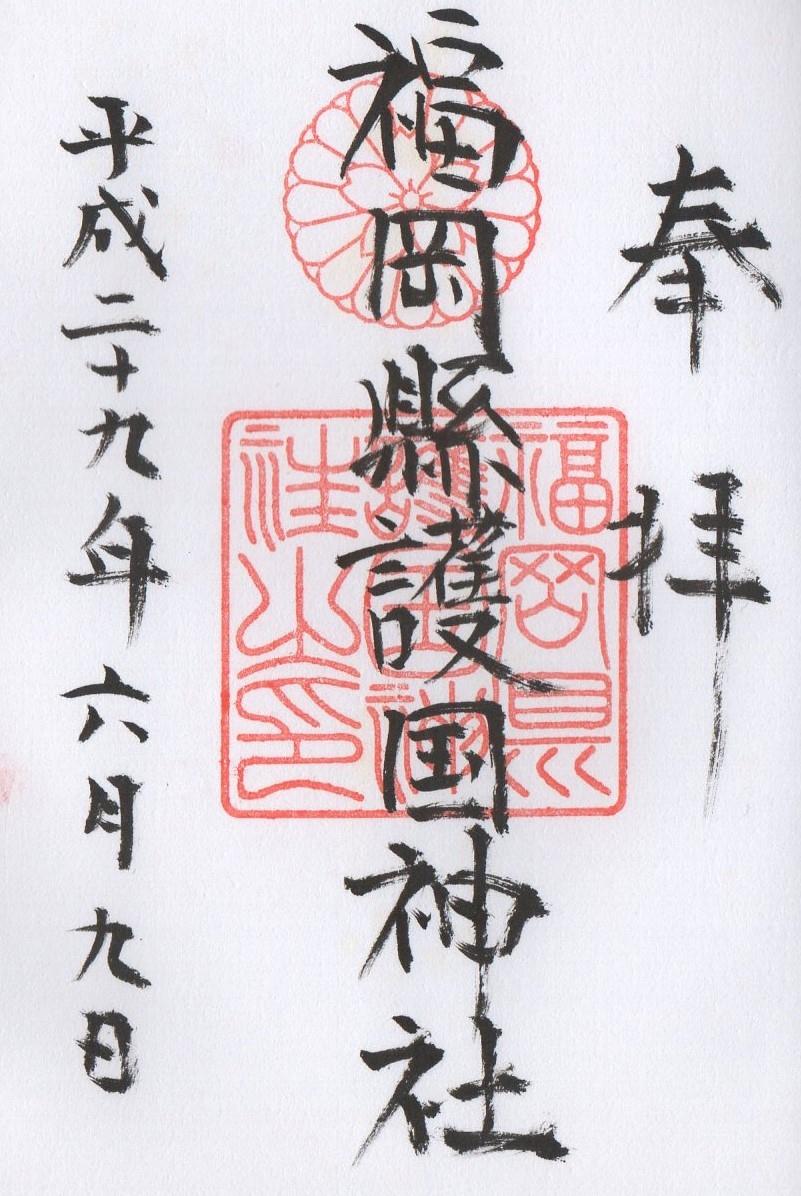 奉拝
福岡縣護国神社
福岡縣
護国神
社之印
平成二十九年六月九日